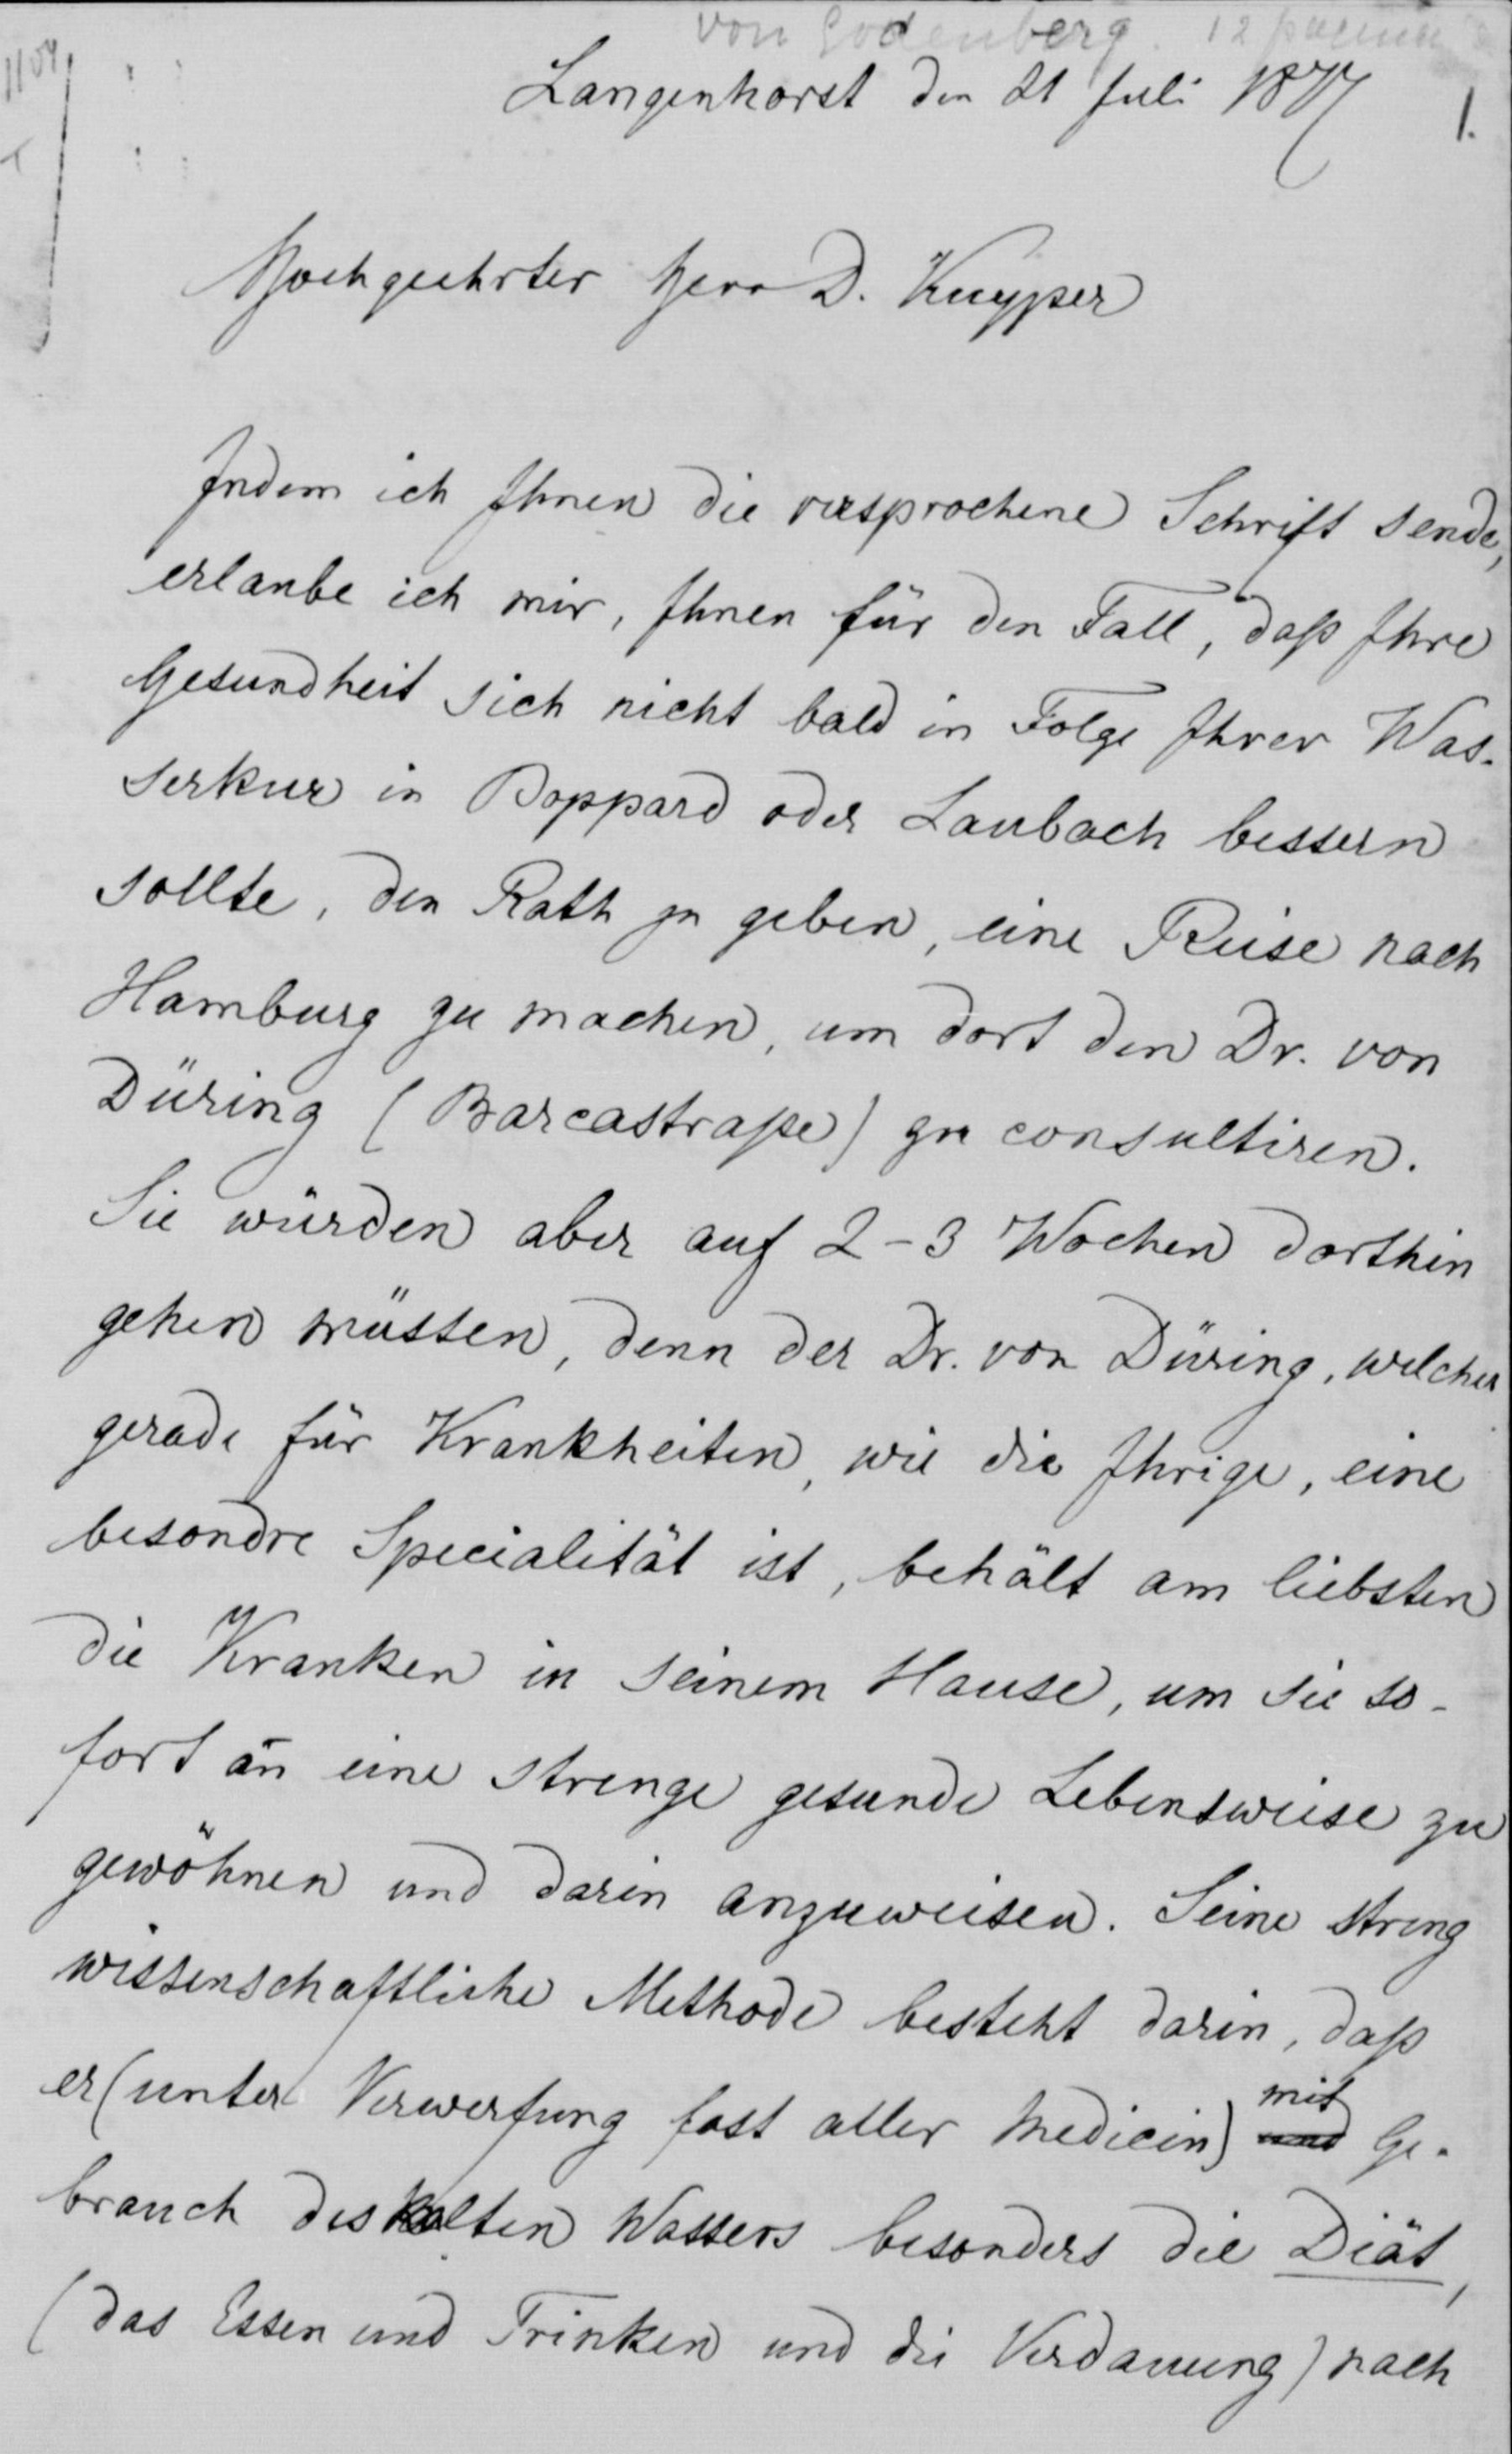 von Godenberg. 12
Langenhorst den 21 Juli 1877
1.
Hochgeehrter Herr D. Kuyper
Indem ich Ihnen die versprochene Schrift sende,
erlaube ich mir, Ihnen für den Fall, daß Ihre
Gesundheit sich nicht bald in Folge Ihrer Was-
serkur in Boppard oder Laubach bessern
sollte, den Rath zu geben, eine Reise nach
Hamburg zu machen, um dort den Dr. von
Düring (Barcastraße) zu consultiren.
Sie würden aber auf 2-3 Wochen dorthin
gehen müssen, denn der Dr. von Düring, welcher
gerade für Krankheiten, wie die Ihrige, eine
besondre Specialität ist, behält am liebsten
die Kranken in seinem Hause, um sie so-
fort an eine strenge gesunde Lebensweise zu
gewöhnen und darin anzuweisen. Seine streng
wissenschaftliche Methode besteht darin, daß
er (unter Verwerfung fast aller Medicin) mit Ge-
brauch des kalten Wassers besonders die Diät,
(das Essen und Trinken und die Verdauung) nach